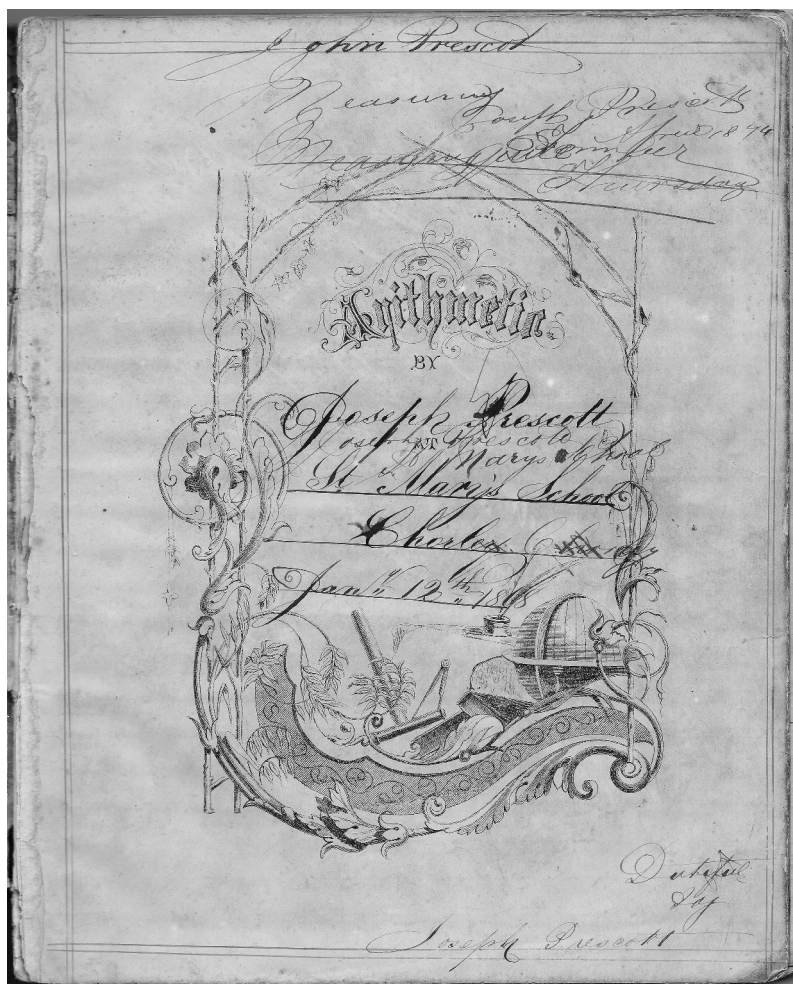 John Prescot
Measuring
Joseph Prescott
April 18 94
Measuring
Thursday
Arithmetic
BY
Joseph Prescott
Joseph Prescott
AT
St Marys School
St Mary's School
Chorley
Jany 12th 18
Dutiful
Joseph Prescott